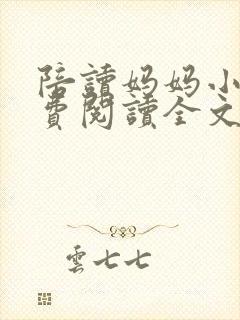 陪讀媽媽小
費閱讀全文
雲七七